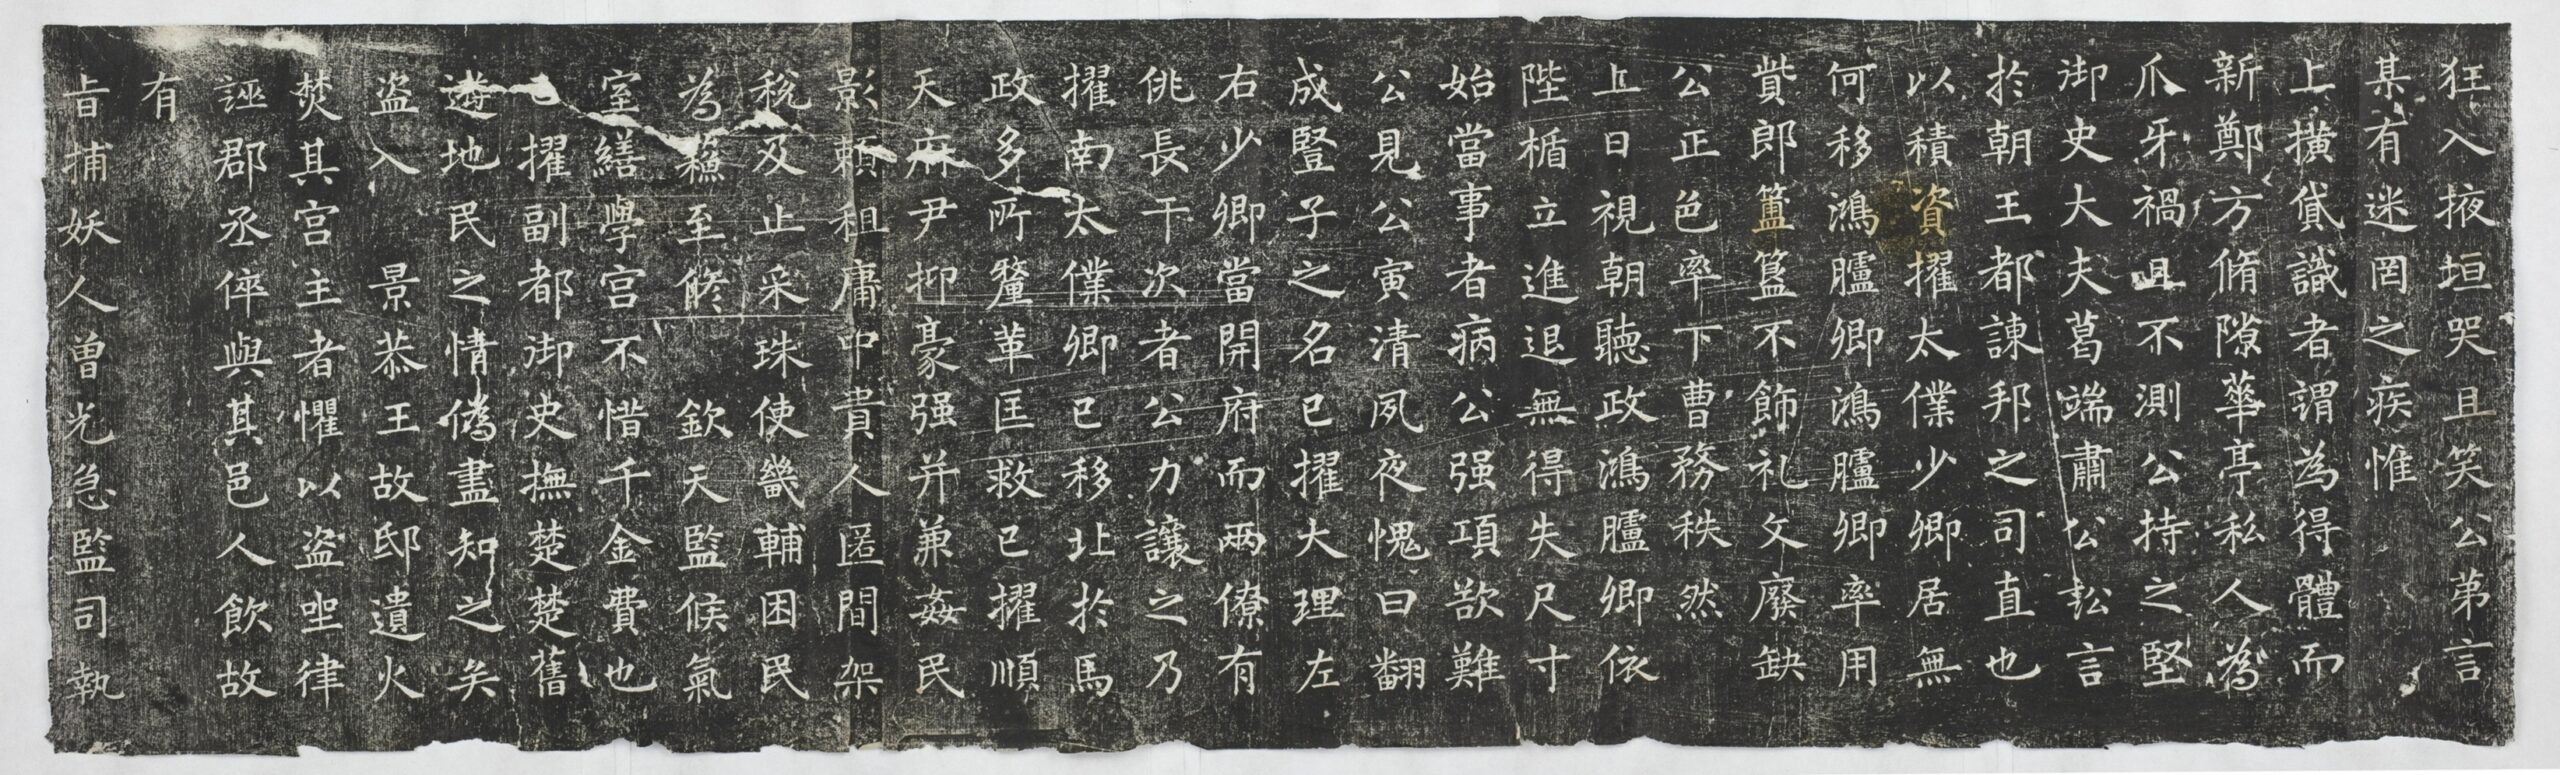 狂入掖垣哭且笑公第言
某有迷罔之疾惟
上擴貸識者謂為得體而
新鄭方脩隙華亭私人為
爪牙禍且不測公持之堅
御史大夫葛端肅公訟言
於朝王都諫邦之司直也
以積資擢太僕少卿居無
何移鴻臚卿鴻臚卿率用
貲郎簠簋不飾礼文廢缺
公正色率下曹務秩然
上日視朝聽政鴻臚卿依
陛楯立進退無得失尺寸
始當事者病公强項欲難
公見公寅清夙夜愧曰翻
成豎子之名已擢大理左
右少卿當開府而兩僚有
佻長干次者公力讓之乃
擢南太僕卿已移北於馬
政多所釐革匡救已擢順
天府尹抑豪强并兼姦民
影賴租庸中貴人匿間架
稅及止采珠使畿輔困民
為蘓至修 欽天監候氣
室繕學宮不惜千金費也
已擢副都御史撫楚楚舊
遊地民之情偽盡知之矣
盜入 景恭王故邸遺火
焚其宮主者懼以盜坐律
誣郡丞倅與其邑人飲故
有
旨捕妖人曾光急監司執